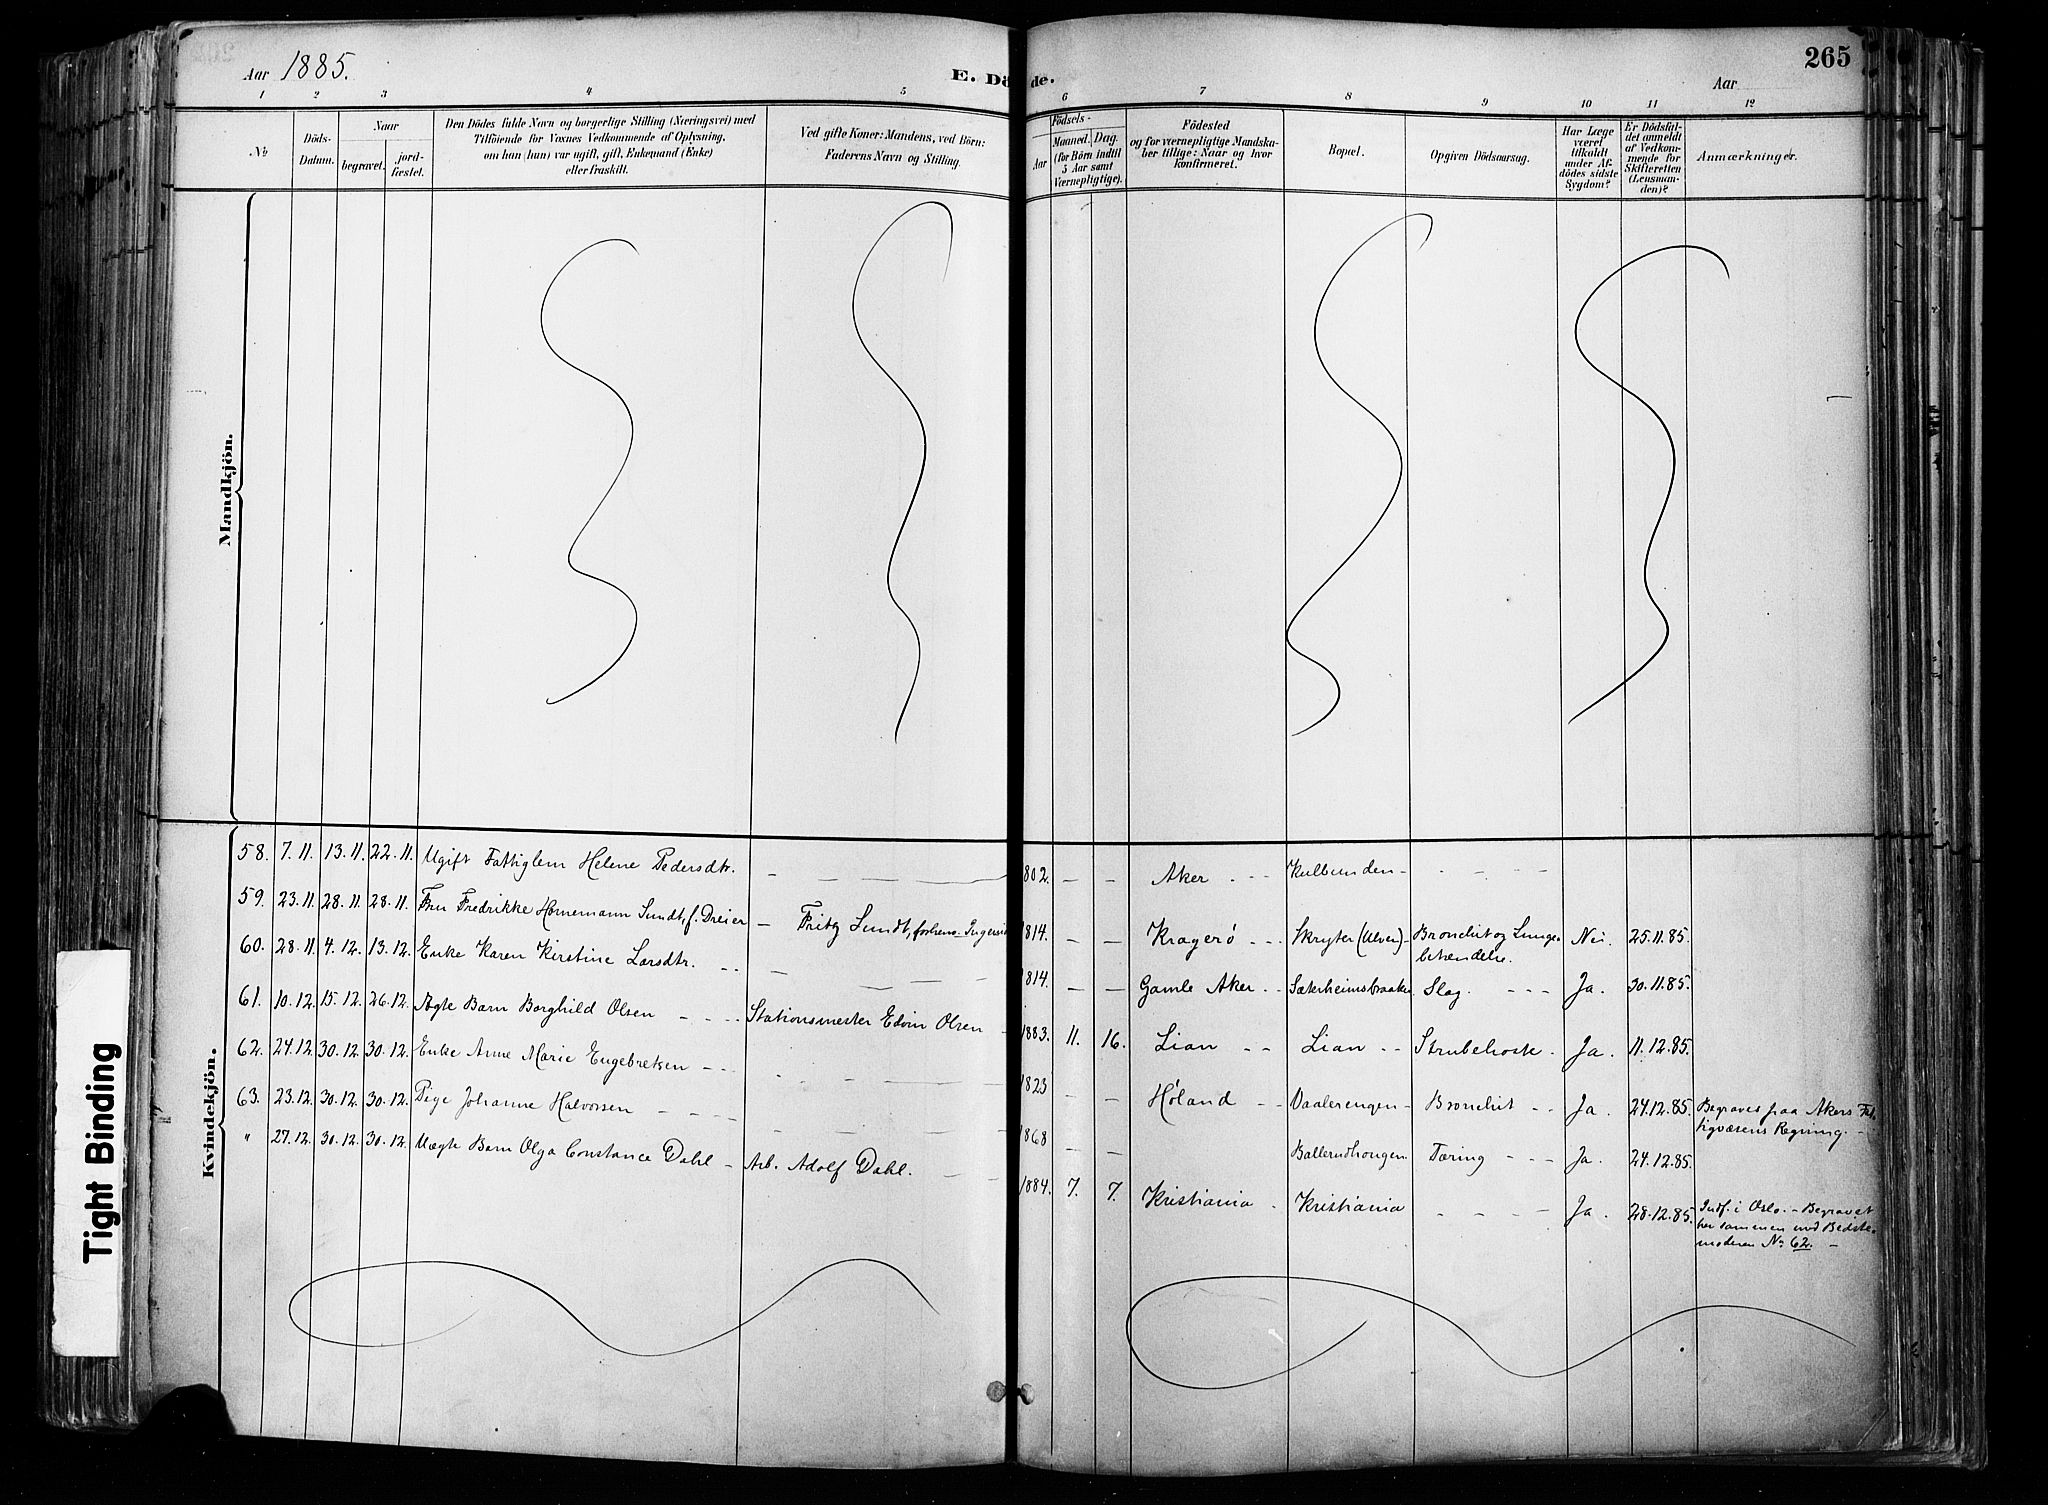 Aar 1885.
E. Dö de.
265
Aar
1 2 3 4 5 6 7 8 9 10 11 12
No
Döds-
Datum.
Naar
begravet.
jord-
fæstet.
Den Dödes fulde Navn og borgerlige Stilling (Næringsvei) med
Tilföiende for Voxnes Vedkommende af Oplysning,
om han (hun) var ugift, gift, Enkemand (Enke)
eller fraskilt.
Ved gifte Koner: Mandens, ved Börn:
Faderens Navn og Stilling.
Födsels-
Aar
Maaned.
Dag.
(for Börn indtil
5 Aar samt
Værnepligtige).
Födested
og for værnepligtige Mandska-
ber tillige: Naar og hvor
konfirmeret.
Bopæl.
Opgiven Dödsaarsag.
Har Læge
været
tilkaldt
under Af-
dödes sidste
Sygdom?
Er Dödsfal-
det anmeldt
af Vedkom-
mende for
Skifteretten
(Lensman-
den)?
Anmærkninger.
Mandkjön.
Kvindekjön.
58. 7.11. 13.11. 22.11. Ugift Fattiglem Helene Pedersdtr. — — — 1802. — — Aker - - - Kulbunden - - - - -
59. 23.11. 28.11. 28.11. Fru Fredrikke Hornemann Sundt, f. Dreier — Fritz Sundt, 1814. — — Kragerø - - - Skryter (Ulven) - Bronchit og Lunge-
betændelse. Nei. 25.11.85.
60. 28.11. 4.12. 13.12. Enke Karen Kirstine Larsdtr. - - — — — 1814. — — Gamle Aker - - Sæterheimsbraaten Slag. - - - Ja. 30.11.85.
61. 10.12. 15.12. 26.12. Ægte Barn Borghild Olsen - - - Stationsmester Edvin Olsen - 1883. 11. 16. Lian - - Lian - - Strubehoste. Ja. 11.12.85.
62. 24.12. 30.12. 30.12. Enke Anne Marie Engebretsen - - - 1823 - - Høland - - Vaalerengen - Bronchit - - Ja. 24.12.85. Begraves paa Akers Fat-
tigvæsens Regning. -
63. 23.12. 30.12. 30.12. Pige Johanne Halvorsen - - - - 1868 - - Ballerudhougen Tæring - - - Ja. 24.12.85.
" 27.12. 30.12. 30.12. Uægte Barn Olga Constance Dahl - Arb. Adolf Dahl. — — 1884. 7. 7. Kristiania - Kristiania - - - - Ja. 28.12.85. Indf. i Oslo. - Begravet
her sammen med Bedste-
moderen No 62. -
Tight Binding